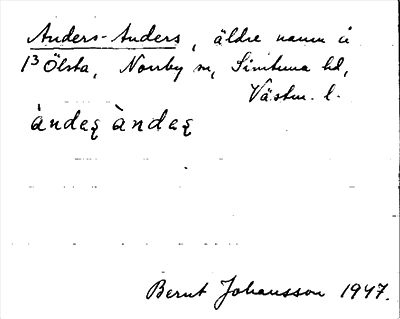 Anders-Anders, äldre namn å
1³ Ölsta, Norrby sn, Simtuna hd,
Västm. l.
àndeʂ àndeʂ
Bernt Johansson 1947.